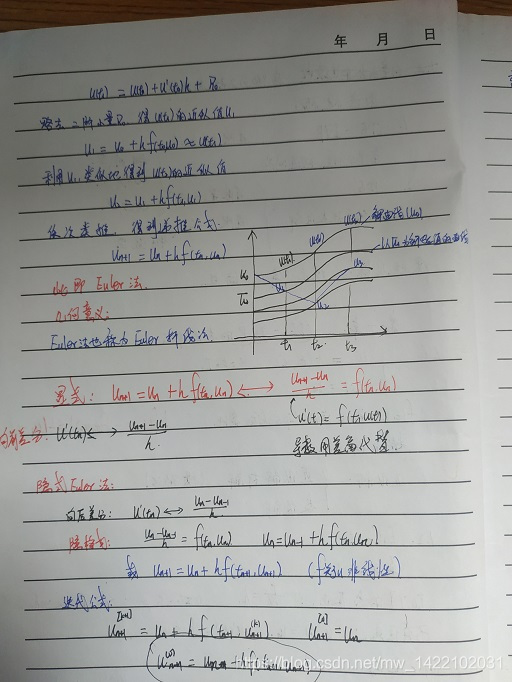 年 月 日
u(t₁) = u(t₀) + u'(t₀)h + R₀
略去二阶小量R₀ 得u(t₁)的近似值u₁
u₁ = u₀ + hf(t₀,u₀) ≈ u(t₁)
利用u₁ 类似地得到u(t₂)的近似值
u₂ = u₁ + hf(t₁,u₁)
依次类推, 得到递推公式
uₙ₊₁ = uₙ + hf(tₙ,uₙ)
此即 Euler 法.
几何意义:
Euler法也称为 Euler 折线法.
u(t)
u(t₁)
u(t₂)
u₀
u₁
u₂
t₁ t₂ t₃
显式: uₙ₊₁ = uₙ + hf(tₙ,uₙ) ⟷ (uₙ₊₁-uₙ)/h = f(tₙ,uₙ)
u'(t) = f(t,u(t))
向前差分: u'(tₙ) ⟷ (uₙ₊₁-uₙ)/h
导数用差商代替.
隐式Euler法:
向后差分: u'(tₙ) ⟷ (uₙ-uₙ₋₁)/h
隐格式: (uₙ-uₙ₋₁)/h = f(tₙ,uₙ) uₙ = uₙ₋₁ + hf(tₙ,uₙ)
uₙ₊₁ = uₙ + hf(tₙ₊₁,uₙ₊₁) (f关于u非线性)
迭代公式:
uₙ₊₁^[k+1] = uₙ + hf(tₙ₊₁,uₙ₊₁^[k]) uₙ₊₁^[0] = uₙ
https://blog.csdn.net/mw_1422102031